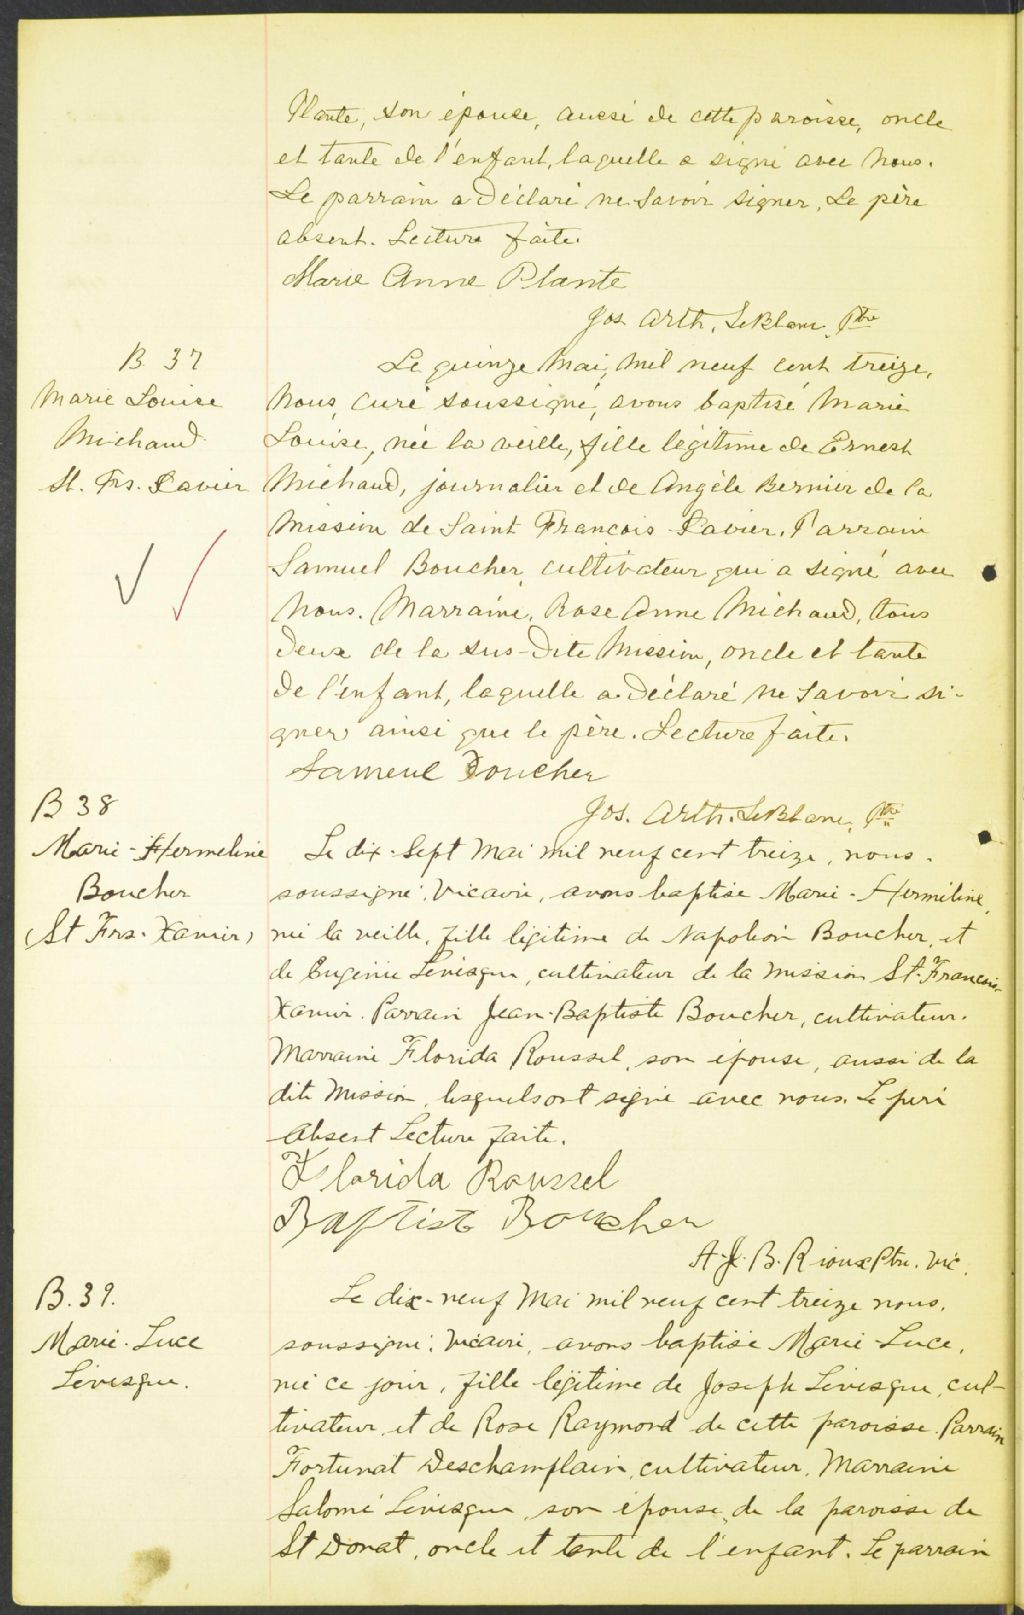 Plante, son épouse, aussi de cette paroisse, oncle
et tante de l'enfant, laquelle a signé avec nous.
Le parrain a déclaré ne savoir signer. Le père
absent. Lecture faite.
Marie Anne Plante
Jos. Arth. LeBlanc, Ptre
B 37
Marie Louise
Michaud
St. Frs. Xavier
Le quinze Mai, mil neuf cent treize,
nous, curé soussigné, avons baptisé Marie
Louise, née la veille, fille légitime de Ernest
Michaud, journalier et de Angèle Bernier de la
Mission de Saint François Xavier. Parrain
Samuel Boucher, cultivateur qui a signé avec
nous. Marraine, Rose Anne Michaud, tous
deux de la sus-dite Mission, oncle et tante
de l'enfant, laquelle a déclaré ne savoir si-
gner ainsi que le père. Lecture faite.
Sameul Boucher
Jos. Arth. LeBlanc, Ptre
B 38
Marie-Hermeline
Boucher
(St Frs. Xavier)
Le dix-sept Mai mil neuf cent treize, nous
soussigné vicaire, avons baptisé Marie-Herméline,
née la veille, fille légitime de Napoléon Boucher, et
de Eugénie Lévisque, cultivateur de la mission St-François
Xavier. Parrain Jean-Baptiste Boucher, cultivateur.
Marraine Florida Roussel, son épouse, aussi de la
dite Mission, lesquels ont signé avec nous. Le père
absent Lecture faite.
Florida Roussel
Baptiste Boucher
A. J. B. Rioux Ptre. Vic.
B. 39.
Marie-Luce
Lévesque.
Le dix-neuf Mai mil neuf cent treize nous,
soussigné vicaire, avons baptisé Marie-Luce,
née ce jour, fille légitime de Joseph Lévesque, cul-
tivateur et de Rose Raymond de cette paroisse. Parrain
Fortunat Deschamplain, cultivateur. Marraine
Salomé Lévisque, son épouse, de la paroisse de
St Donat, oncle et tante de l'enfant. Le parrain